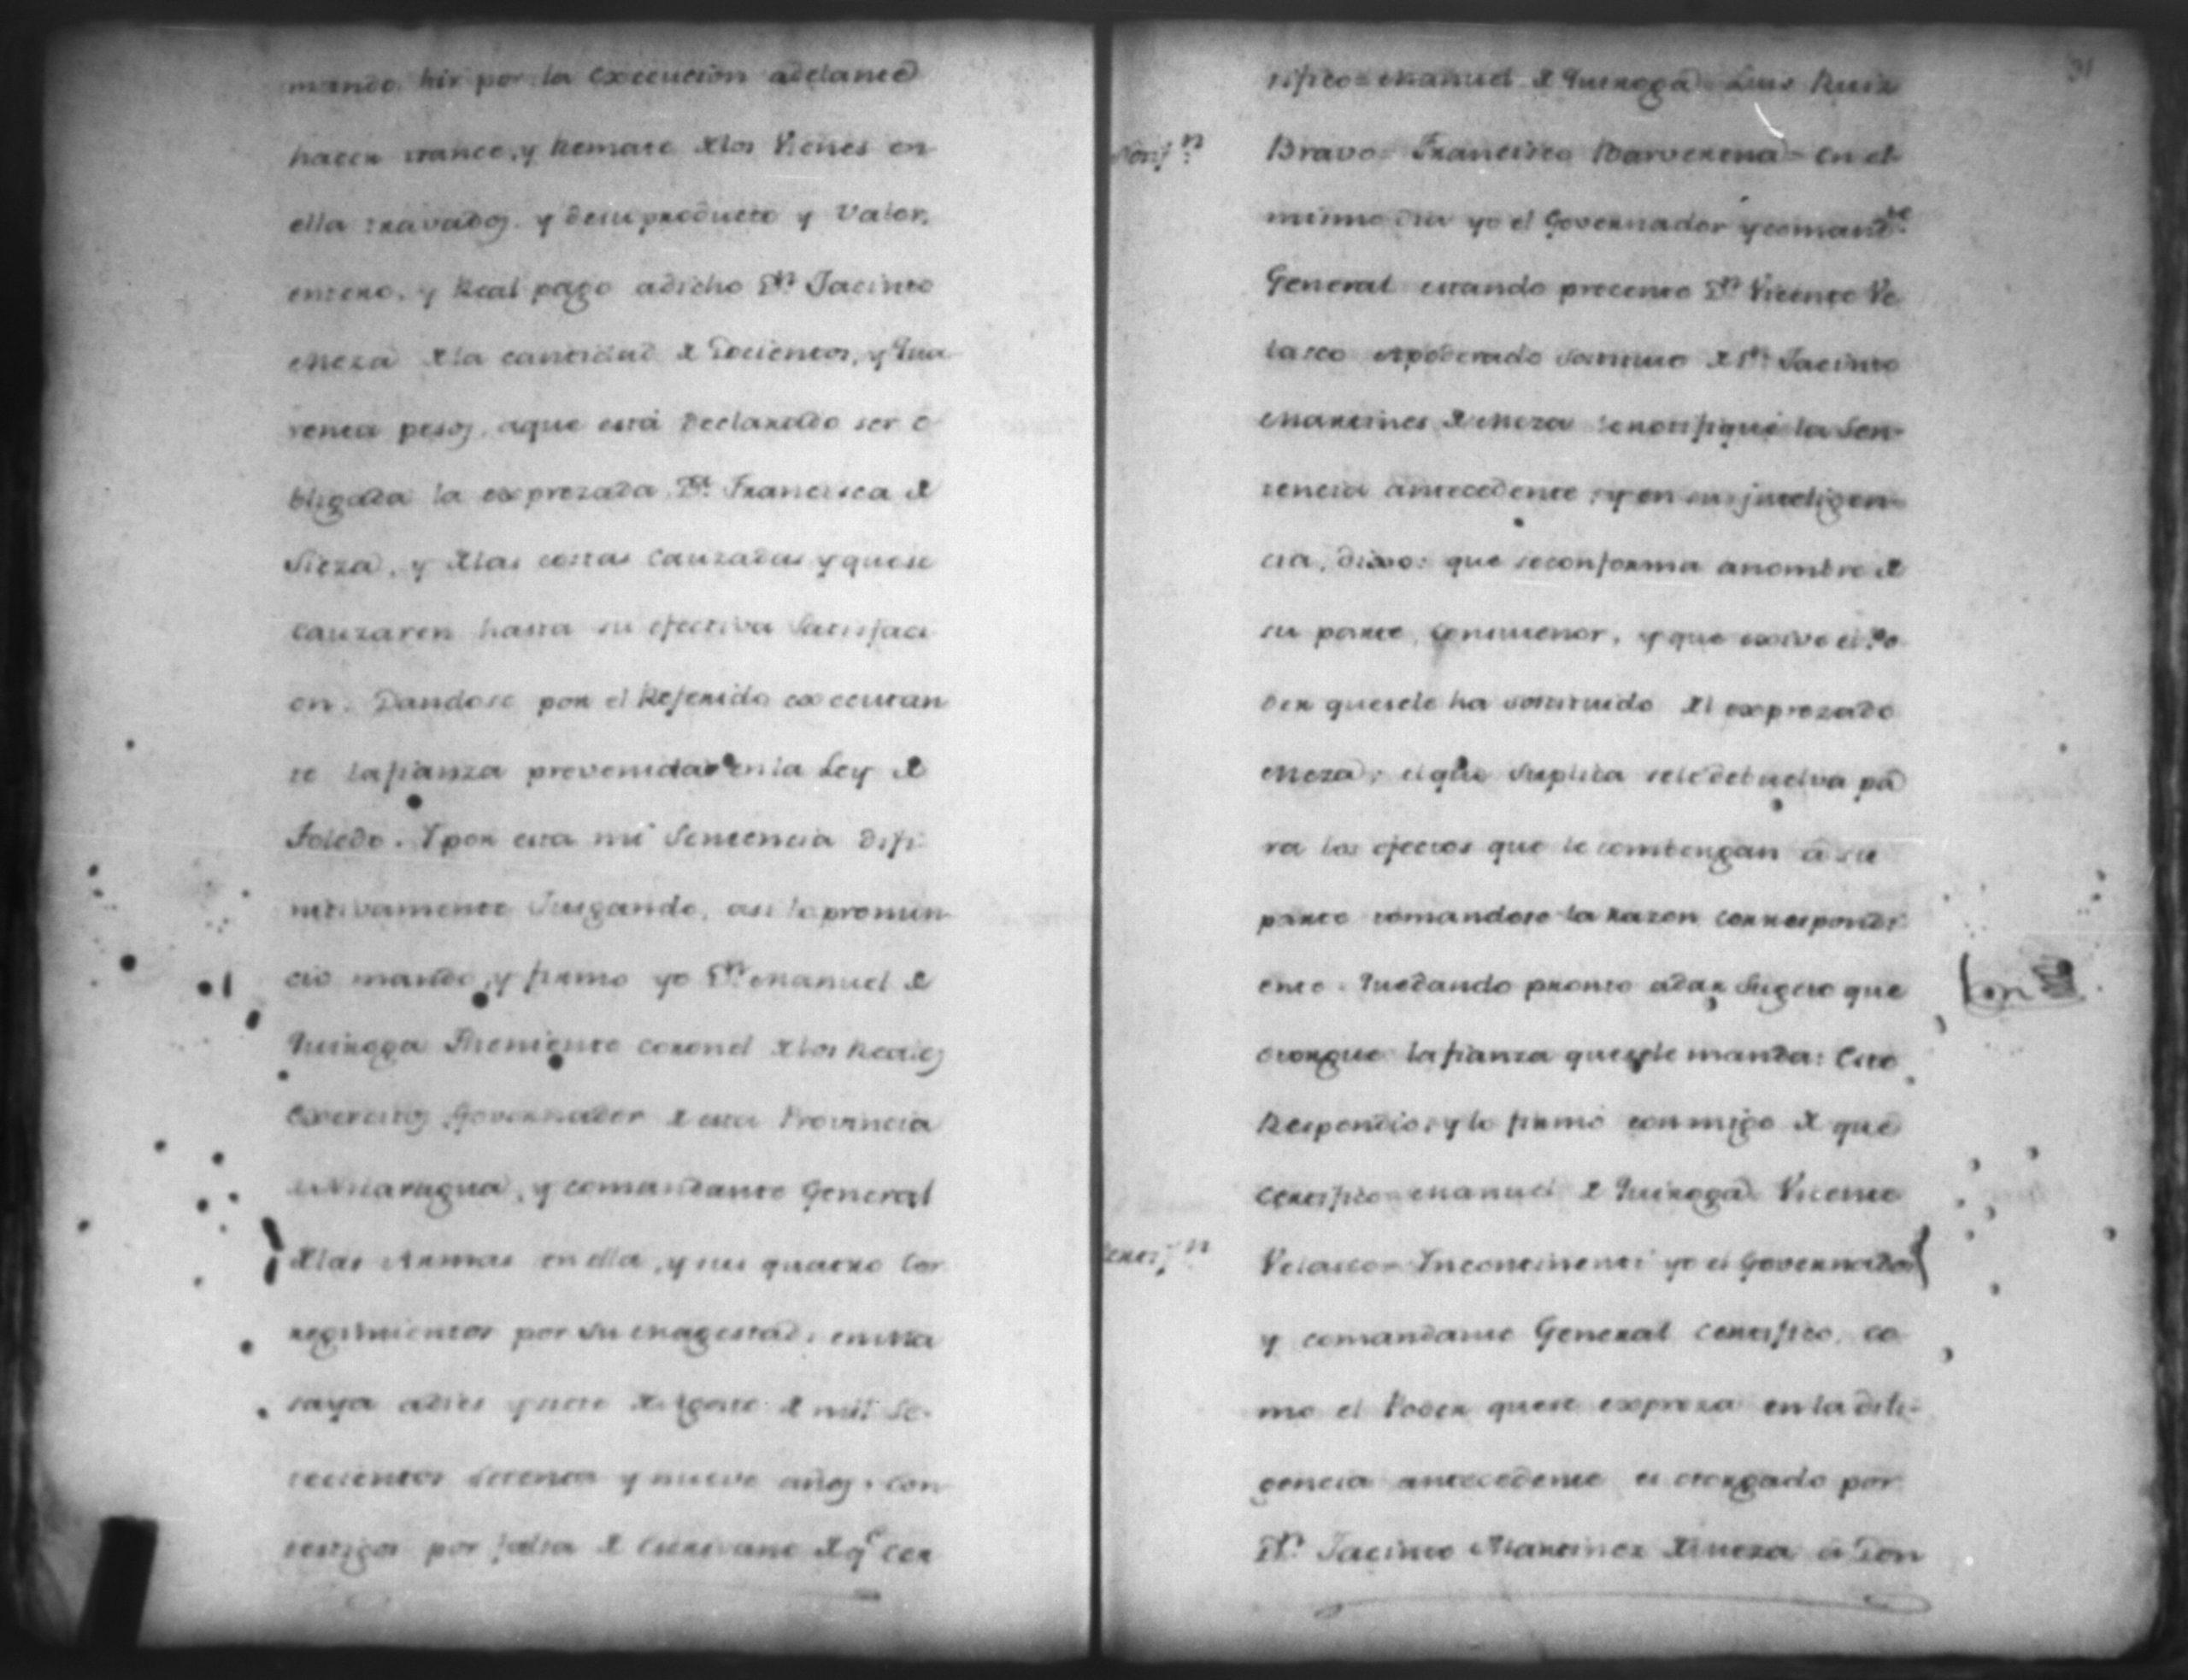 mando hir por la execucion adelante
hacer trance, y Remate de los Vienes en
ella travados, y de su producto y Valor,
entero, y Real pago a dicho Dn. Jacinto
Meza de la cantidad de Docientos, y Qua
renta pesos, aque está Declarado ser o
bligada la exprezada Da. Francisca de
Sieza, y de las costas cauzadas y quese
cauzaren hasta su efectiva Satisfaci
on. Dandose por el Referido executan
te lafianza prevenida en la Ley de
Toledo. Y por esta mi Sentencia difi
nitivamente Jusgando, asi lo pronun
cio mando, y firmo yo Dn. Manuel de
Quiroga Theniente coronel de los Reales
Exercitos Governador de esta Provincia
de Nicaragua, y comandante General
de las Armas en ella, y sus quatro Cor
regimientos por Su Magestad, en Ma
saya a dies y siete de Agosto de mil Se
tecientos Setenta y nueve años, con
testigos por falta de Escrivano de qe. cer
31
tifico = Manuel de Quiroga = Luis Ruiz
Notifn.
Bravo = Francisco Barverena = En el
mismo dia yo el Governador y comandte.
General estando precente Dn. Vicente Ve
lasco Apoderado de Dn. Jacinto
Martines de Meza le notifiqué la Sen
tencia antecedente, y en su inteligen
cia, dixo: que seconforma anombre de
su parte, y que exive el Po
der quesele ha sostituido del exprezado
Meza; el que Suplica sele debuelva pa
ra los efectos que le combengan a su
parte tomandose la razon correspondi
ente. Quedando pronto adar Sugeto que
otorgue lafianza quesele manda: Esto
Respondio, y lo firmó conmigo de que
certifico = Manuel de Quiroga = Vicente
Certifn.
Velasco = Incontinenti yo el Governador
y comandante General certifico, co
mo el Poder quese expreza en la dili=
gencia antecedente es otorgado por
Dn. Jacinto Martinez de Meza a Don